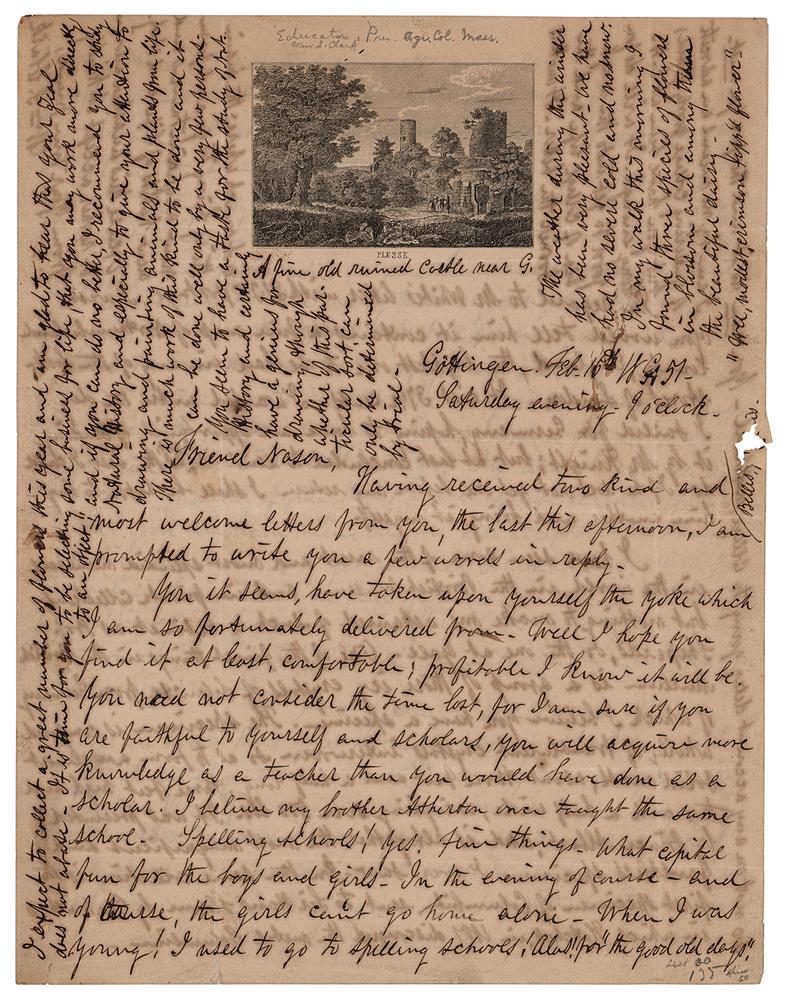 Educator, Pres. Agr. Col. Mass.
Wm. S. Clark
PLESSE
A fine old ruined castle near G.
Göttingen. Feb. 16th 1851-
Saturday evening- 9 o'clock-
Friend Nason,
Having received two kind and
most welcome letters from you, the last this afternoon, I am
prompted to write you a few words in reply-
You it seems, have taken upon yourself the yoke which
I am so fortunately delivered from- Well I hope you
find it at least, comfortable; profitable I know it will be.
You need not consider the time lost, for I am sure if you
are faithful to yourself and scholars, you will acquire more
knowledge as a teacher than you would have done as a
scholar. I believe my brother Atherton once taught the same
school- Spelling schools! yes. fine things- What capital
fun for the boys and girls- In the evening of course- and
of course, the girls can't go home alone- When I was
young! I used to go to spelling schools! Alas! for "the good old days".
I expect to collect a great number of flowers this year and am glad to hear that your zeal
does not abate- It is time for you to be selecting some business for life, that you may work more directly
to an object; and if you can do no better, I recommend you to study
Natural History and especially to give your attention to
drawing and painting animals and plants from life.
There is much work of this kind to be done and it
can be done well only by a very few persons-
You seem to have a taste for the study of Nat.
History and certainly
have a genius for
drawing though
whether of this par-
ticular sort can
only be determined
by trial-
The weather during the winter
has been very pleasant- we have
had no severe cold and no snow.
In my walk this morning I
found three species of flowers
in blossom and among them
the beautiful daisy-
"Wee, modest, crimson tipp'd flower"-
Bellis,
List
135